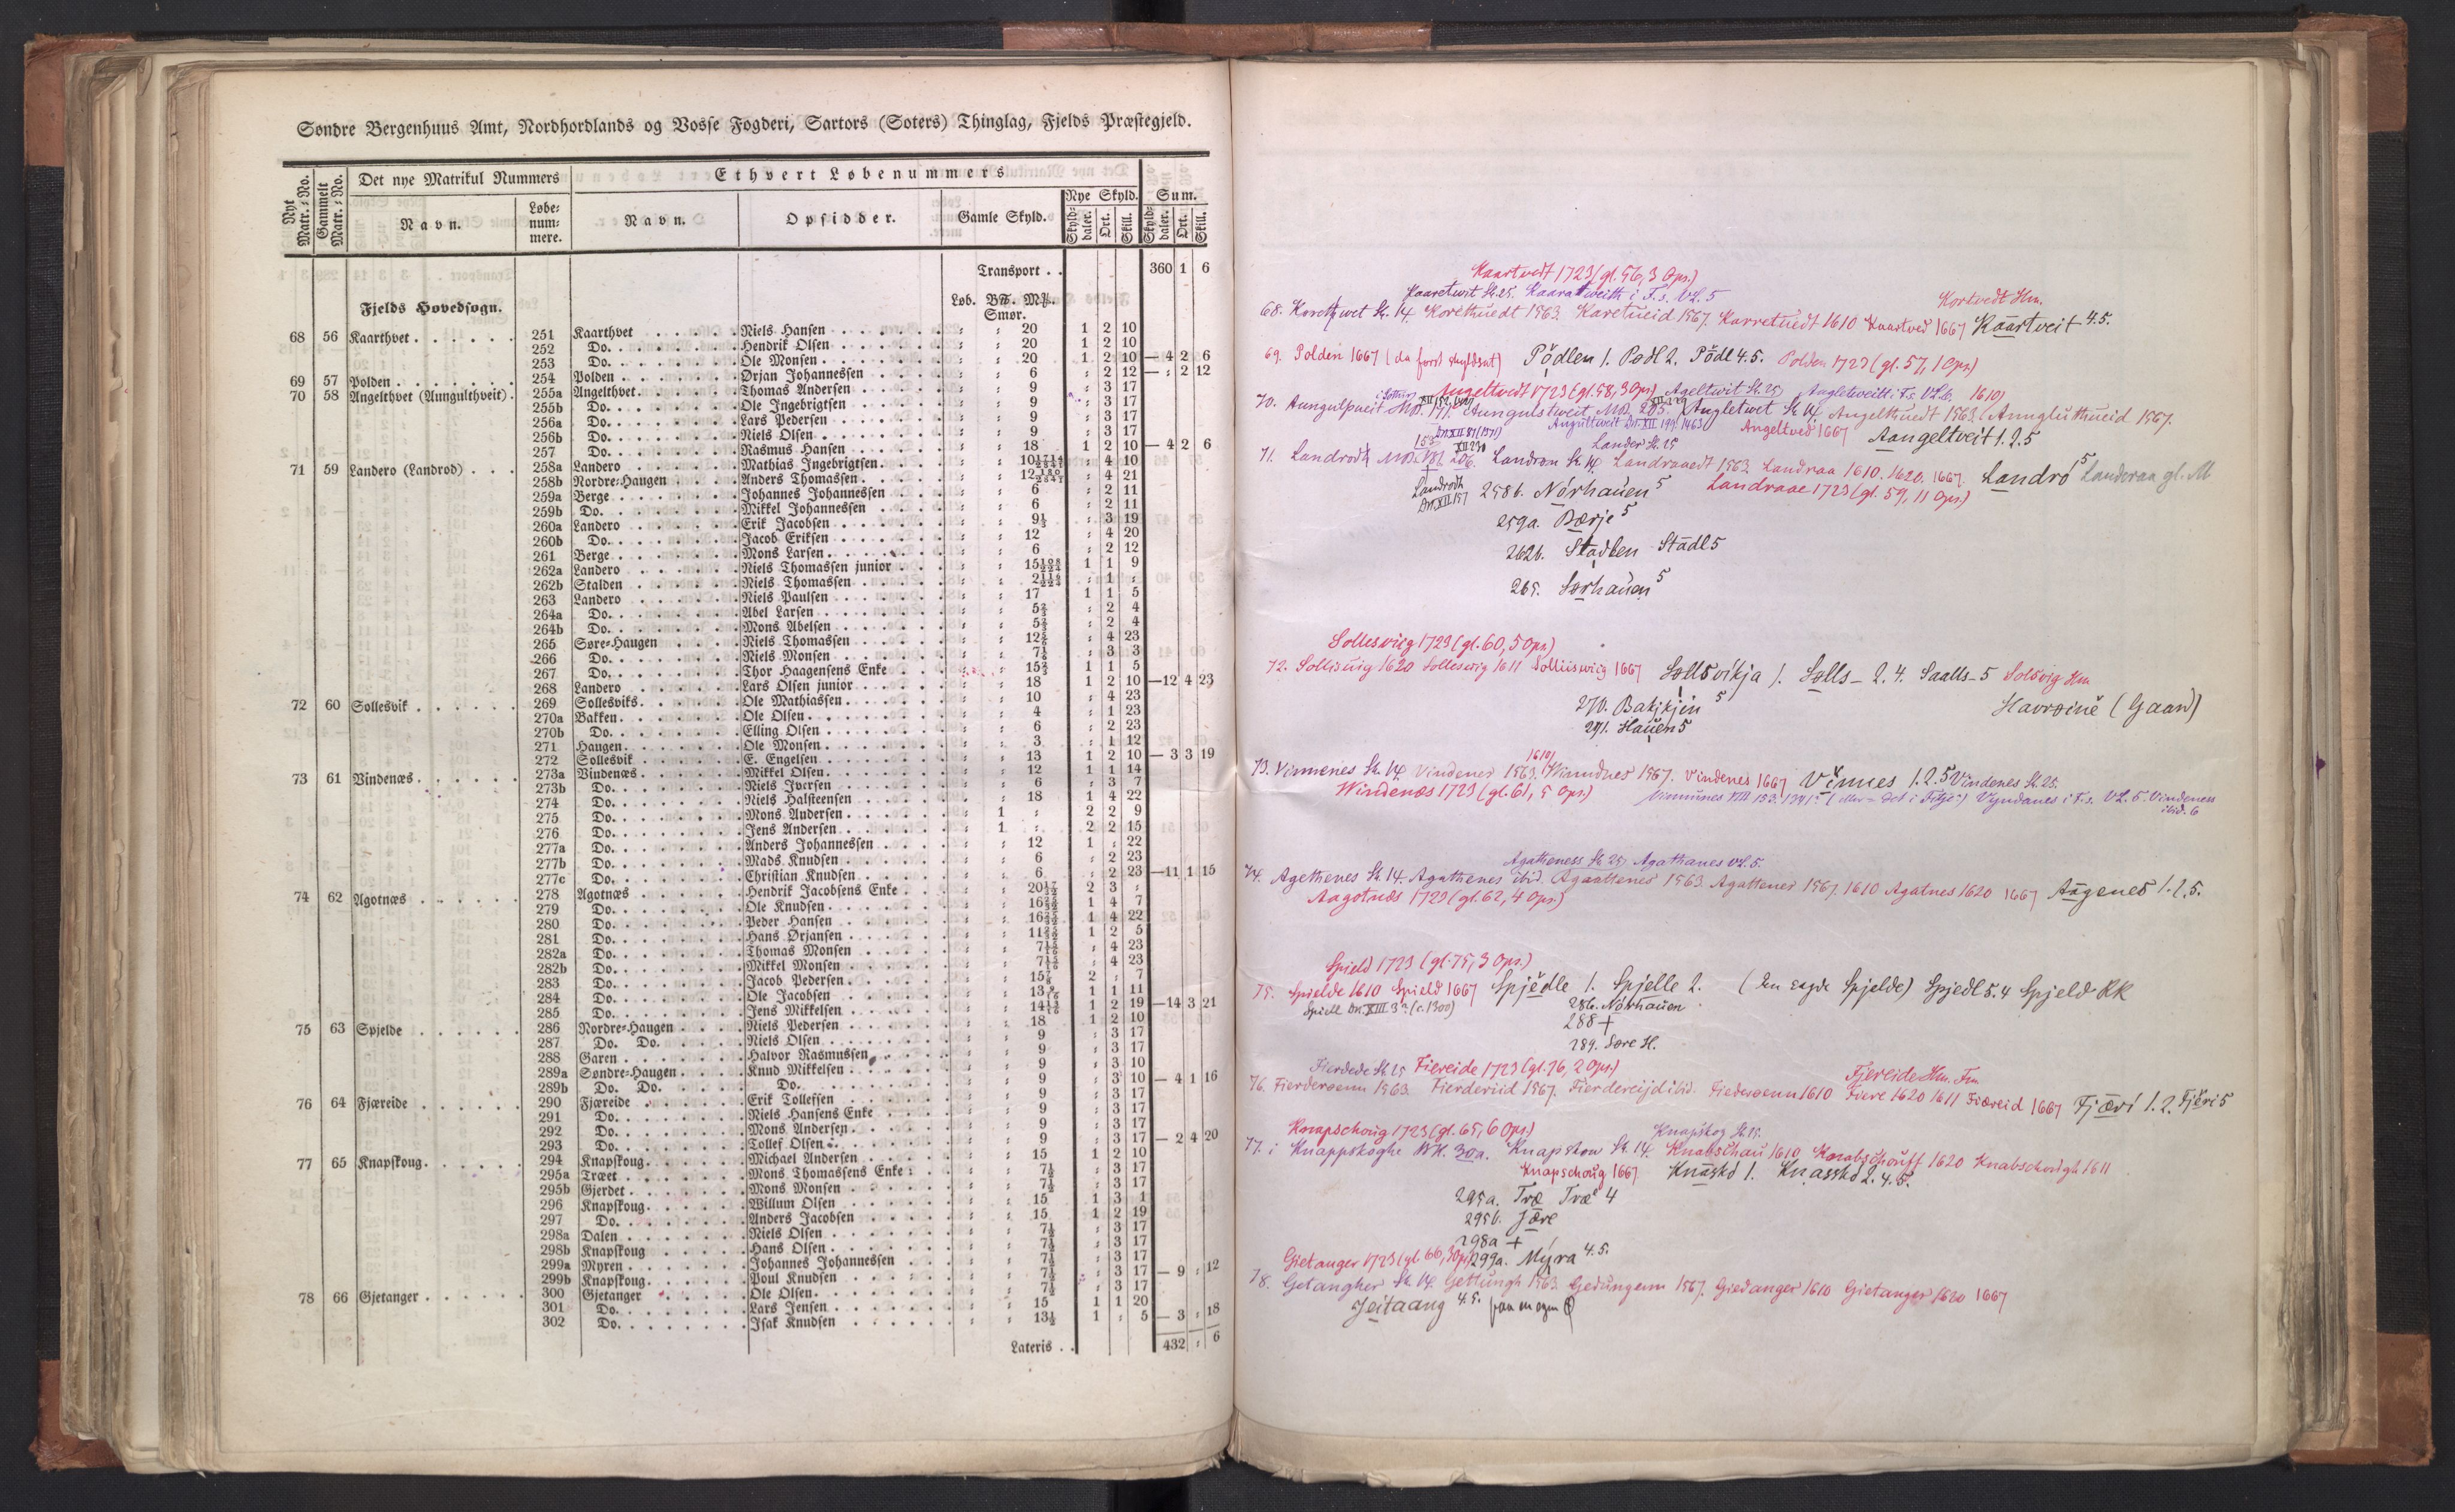 Søndre Bergenhuus Amt, Nordhordlands og Vosse Fogderi, Sartors (Soters) Thinglag, Fjelds Præstegjeld.
Nyt Matr.-No. Gammelt Matr.-No. Det nye Matrikul Nummers Ethvert Løbenummers
Navn. Løbenummere. Navn. Opsidder. Gamle Skyld. Nye Skyld. Sum.
Skylddaler. Ort. Skill. Skylddaler. Ort. Skill.
Transport . . 360 1 6
Fjelds Hovedsogn. Løb. BΠ. Mρ. Smør.
68 56 Kaarthvet 251 Kaarthvet Niels Hansen 20 1 2 10
252 Do. Hendrik Olsen 20 1 2 10
253 Do. Ole Monsen 20 1 2 10 — 4 2 6
69 57 Polden 254 Polden Ørjan Johannessen 6 : 2 12 — : 2 12
70 58 Angelthvet (Aungulthveit) 255a Angelthvet Thomas Andersen 9 : 3 17
255b Do. Ole Ingebrigtsen 9 : 3 17
256a Do. Lars Pedersen 9 : 3 17
256b Do. Niels Olsen 9 : 3 17
257 Do. Rasmus Hansen 18 1 2 10 — 4 2 6
71 59 Landero (Landrod) 258a Landero Mathias Ingebrigtsen : 4 10
258b Nordre-Haugen Anders Thomassen : 4 21
259a Berge Johannes Johannessen 6 : 2 11
259b Do. Mikkel Johannessen 6 : 2 11
260a Landero Erik Jacobsen 9⅓ : 3 19
260b Do. Jacob Eriksen 12 : 4 20
261 Berge Mons Larsen 6 : 2 12
262a Landero Niels Thomassen junior 1 1 9
262b Stalden Niels Thomassen : 1 :
263 Landero Niels Paulsen 17 1 1 5
264a Do. Abel Larsen 5⅔ : 2 4
264b Do. Mons Abelsen 5⅔ : 2 4
265 Søre-Haugen Niels Thomassen 12⅚ : 4 23
266 Do. Niels Monsen 7⅙ : 3 3
267 Do. Thor Haagensens Enke 15⅔ 1 1 5
268 Landero Lars Olsen junior 18 1 2 10 —12 4 23
72 60 Sollesvik 269 Sollesviks Ole Mathiassen 10 : 4 23
270a Bakken Ole Olsen 4 : 1 23
270b Do. Elling Olsen 6 : 2 23
271 Haugen Ole Monsen 3 : 1 12
272 Sollesvik E. Engelsen 13 1 2 10 — 3 3 19
73 61 Vindenæs 273a Vindenæs Mikkel Olsen 12 1 1 14
273b Do. Niels Iversen 6 : 3 7
274 Do. Niels Halsteensen 18 1 4 22
275 Do. Mons Andersen 1 : 2 2 9
276 Do. Jens Andersen 1 : 2 2 15
277a Do. Anders Johannessen 12 1 : 22
277b Do. Mads Knudsen 6 : 2 23
277c Do. Christian Knudsen 6 : 2 23 —11 1 15
74 62 Agotnæs 278 Agotnæs Hendrik Jacobsens Enke 2 3 :
279 Do. Ole Knudsen 1 4 7
280 Do. Peder Hansen 1 4 22
281 Do. Hans Ørjansen 1 2 5
282a Do. Thomas Monsen : 4 23
282b Do. Mikkel Monsen : 4 23
283 Do. Jacob Pedersen 2 : 7
284 Do. Ole Jacobsen 1 1 11
285 Do. Jens Mikkelsen 1 2 19 —14 3 21
75 63 Spjelde 286 Nordre-Haugen Niels Pedersen 18 1 2 10
287 Do. Do. Niels Olsen 9 : 3 17
288 Garen Halvor Rasmussen 9 : 3 17
289a Søndre-Haugen Knud Mikkelsen 9 : 3 10
289b Do. Do. Do. 9 : 3 10 — 4 1 16
76 64 Fjæreide 290 Fjæreide Erik Tollefsen 9 : 3 17
291 Do. Niels Hansens Enke 9 : 3 17
292 Do. Mons Andersen 9 : 3 17
293 Do. Tollef Olsen 9 : 3 17 — 2 4 20
77 65 Knapskoug 294 Knapskoug Michael Andersen 15 1 2 10
295a Træet Mons Thomassens Enke 7½ : 3 17
295b Gjerdet Mons Monsen 7½ : 3 17
296 Knapskoug Willum Olsen 15 1 3 1
297 Do. Anders Jacobsen 15 1 2 19
298a Dalen Niels Olsen 7½ : 3 17
298b Knapskoug Hans Olsen 7½ : 3 17
299a Myren Johannes Johannessen 7½ : 3 17
299b Knapskoug Poul Knudsen 7½ : 3 17 — 9 : 12
78 66 Gjetanger 300 Gjetanger Ole Olsen 7½ : 3 17
301 Do. Lars Jensen 15 1 1 20
302 Do. Isak Knudsen 13½ 1 : 5 — 3 : 18
Lateris . . 432 : 6
Kaartvedt 1723 (gl. 56, 3 Ops.)
Kaaretwit St. 25. Kaaratweith i F.s. VL. 5 Kortvedt Hm.
68. Korethwet St. 14. Korethuedt 1563. Karetueid 1567. Karretuedt 1610 Kaartved 1667 Kaartveit 4.5.
69. Polden 1667 (da først skyldsat) Pødlen 1. Podl 2. Pödl 4.5. Polden 1723 (gl. 57, 1 Ops)
Angeltvedt 1723 (gl. 58, 3 Ops) Ageltwit St. 25 Angletweitt i F.s. VL. 6. 1610
70. Aungulþueit Aungulstweit MD. 205. Angletwet St. 14. Angelthuedt 1563. Annngluthueid 1567.
Angeltved 1667 Aangeltveit 1.2.5
Lander St. 25
71. Landrodh 206. Landrom St. 14 Landraaedt 1563. Landraa 1610. 1620. 1667. Landro 5 Landeraa gl. M
Landrodh DN. XII 157 258b. Nørhauen 5 Landraae 1723 (gl. 59, 11 Ops.)
259a. Bærje 5
262b. Stadlen Stadl 5
265. Sørhauen 5
Sollesvieg 1723 (gl. 60, 5 Ops)
72. Sollisuig 1620 Solleswig 1611 Solliiswiig 1667 Sollsvikja 1. Sølls- 2.4. Saalls-5 Solsvig Hm
270. Bakjkjen 5 Havroinè (Gaard)
271. Hauen 5
73. Vinnenes St. 14. Vindenes 1563. 1610 Winndnes 1567. Vindenes 1667 Vinnes 1.2.5 Vindenes St. 25.
Windenæs 1723 (gl. 61, 5 Ops.) Vyndanes i F.s. VL. 5. Vindeness ibid. 6
Agatheness St. 25, Agathanes VL. 5.
74. Agethenes St. 14. Agathenes ibid. Agaattenes 1563. Agattenes 1567. 1610 Agatnes 1620 1667 Aagenes 1.2.5.
Aagotnæs 1723 (gl. 62, 4 Ops.)
Spield 1723 (gl. 75, 3 Ops.)
75. Spielde 1610 Spield 1667 Spjedle 1. Spjelle 2. (En sagde Spjelde) Spjedl 5.4 Spjeld RK
Spiell DN. XIII 3 (c. 1300) 286. Nørhauen
288 +
289. Søre H.
Fierdede St. 25 Fiereide 1723 (gl. 76, 2 Ops) Fjereide Hm. Fm.
76. Fierderoenn 1563. Fierderiid 1567. Fierdereijd ibid. Fiederoenn 1610 Fiere 1620 1611 Fiæreid 1667 Fjæri 1.2. Fjæri 5
Knapschoug 1723 (gl. 65, 6 Ops.) Knapskog St. 25.
77. i Knappskoghe BK. 30a. Knapskow St. 14. Knabschau 1610 Knabschouff 1620 Knabschough 1611
Knapschoug 1667. Knaskó 1. Knasskó 2.4.5.
295a. Træ Træ 4
295b. Jære
298a +
Gietanger 1723 (gl. 66, 3 Ops) 299a. Myra 4.5.
78. Getangher St. 14. Gettungh 1563. Gedungenn 1567. Giedanger 1610 Gietanger 1620 1667
Jeitaang 4.5.